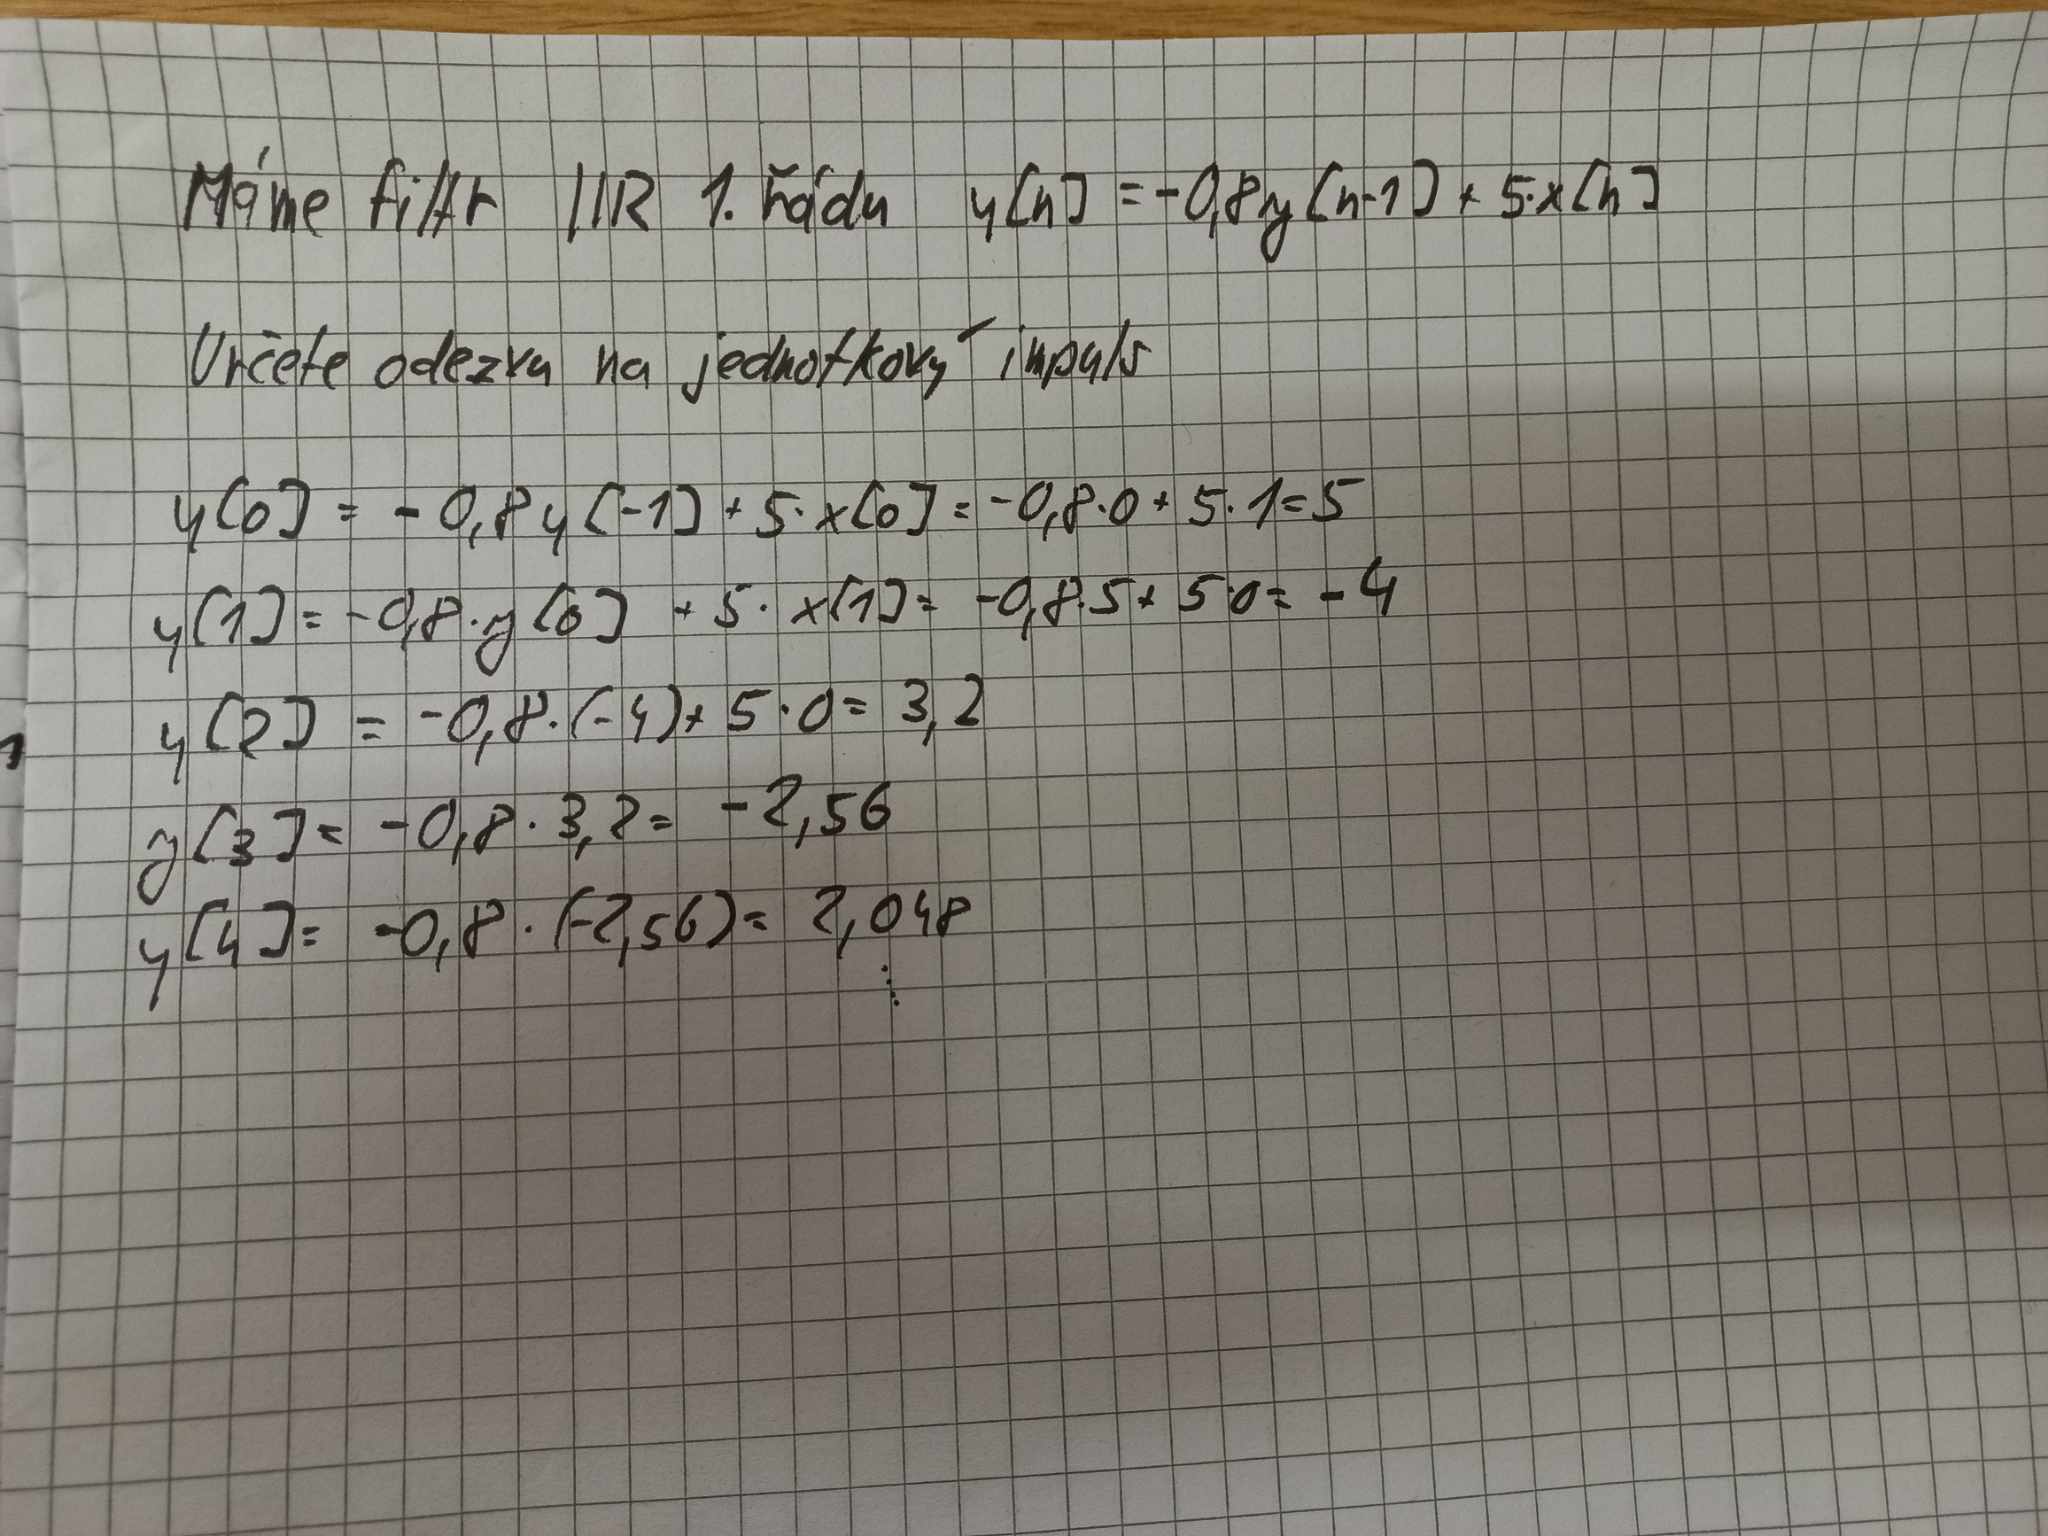 Máme filtr IIR 1. řádu y[n] = -0,8y[n-1] + 5·x[n]
Určete odezvu na jednotkový impuls
y[0] = -0,8y[-1] + 5·x[0] = -0,8·0 + 5·1=5
y[1] = -0,8·y[0] + 5·x[1] = -0,8·5 + 5·0= -4
y[2] = -0,8·(-4)+ 5·0= 3,2
y[3] = -0,8·3,2= -2,56
y[4] = -0,8·(-2,56)= 2,048
⋮